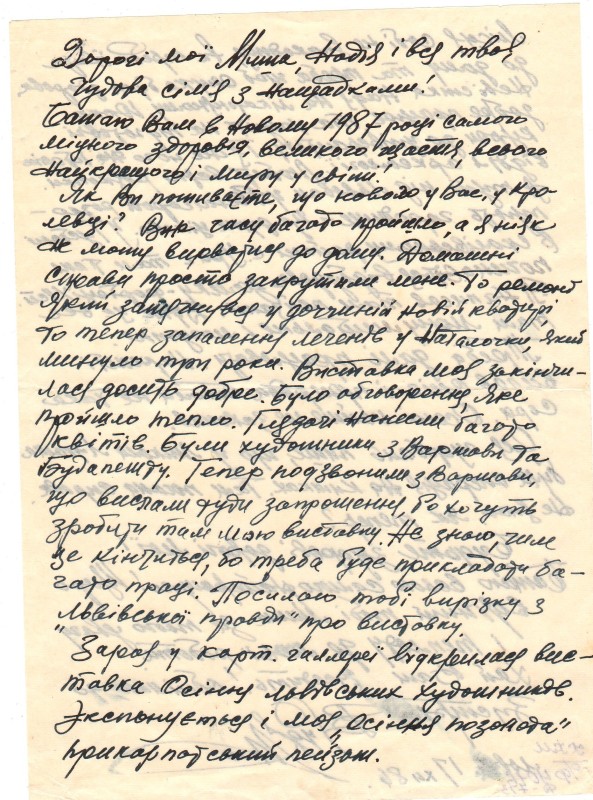 Дорогі мої Миша, Надія і вся твоя
чудова сім'я з нащадками!
Бажаю Вам в Новому 1987 році самого
міцного здоровія, великого щастя, всього
найкращого і миру у світі!
Як Ви поживаєте, що нового у Вас, у Кро-
левці? Вже часу багато пройшло, а я ніяк
не можу вирватися до дому. Домашні
справи просто закрутили мене. То ремонт
який затягнувся у доччиній новій квартирі,
то тепер запалення легенів у Наталочки, який
минуло три роки. Виставка моя закінчи-
лася досить добре. Було обговорення, яке
пройшло тепло. Глядачі нанесли багато
квітів. Були художники з Варшави та
Будапешту. Тепер подзвонили з Варшави,
що вислали туди запрошення, бо хочуть
зробити там мою виставку. Не знаю, чим
це кінчиться, бо треба буде прикладати ба-
гато праці. Посилаю тобі вирізку з
"Львівської правди" про виставку.
Зараз у карт. галлереї відкрилася вис-
тавка Осіння львівських художників.
Экспонується і моя "Осіння позолота"
прикарпатський пейзаж.